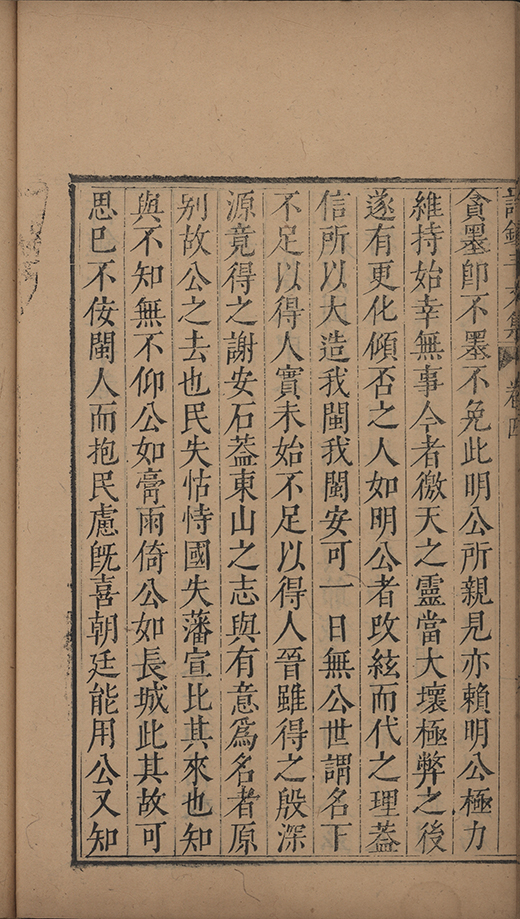 貪墨卽不墨不免此明公所親見亦賴明公極力
維持始幸無事今者徼天之靈當大壞極弊之後
遂有更化傾否之人如明公者攺絃而代之理葢
信所以大造我閩我閩安可一日無公世謂名下
不足以得人實未始不足以得人晉雖得之殷深
源竟得之謝安石葢東山之志與有意爲名者原
别故公之去也民失怙恃國失藩宣比其來也知
與不知無不仰公如膏雨倚公如長城此其故可
思巳不佞閩人而抱民慮旣喜朝廷能用公又知
集 卷四